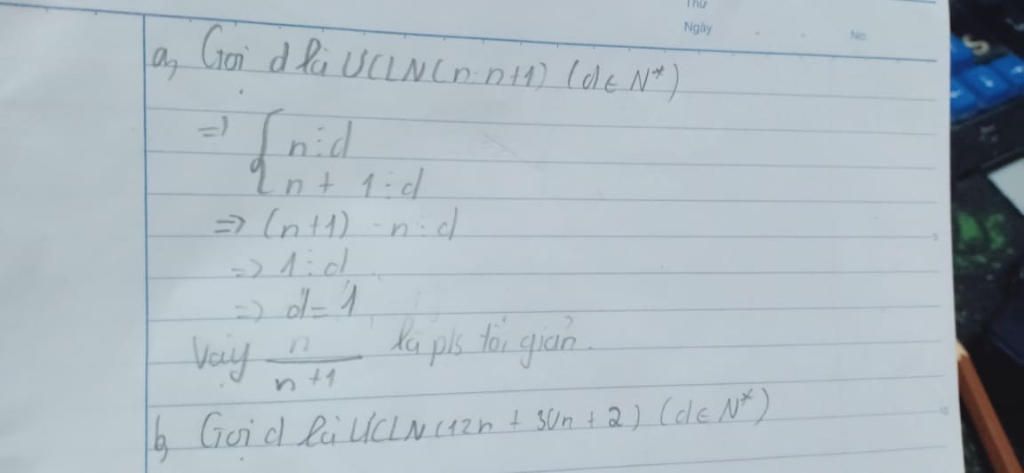 Thứ
Ngày
No.
a, Gọi d là ƯCLN(n. n+1) (d ∈ N*)
=> { n ⋮ d
n + 1 ⋮ d
=> (n+1) - n ⋮ d
=> 1 ⋮ d
=> d = 1
Vậy n/n+1 là p/s tối giản.
b, Gọi d là ƯCLN(12n + 30n + 2) (d ∈ N*)